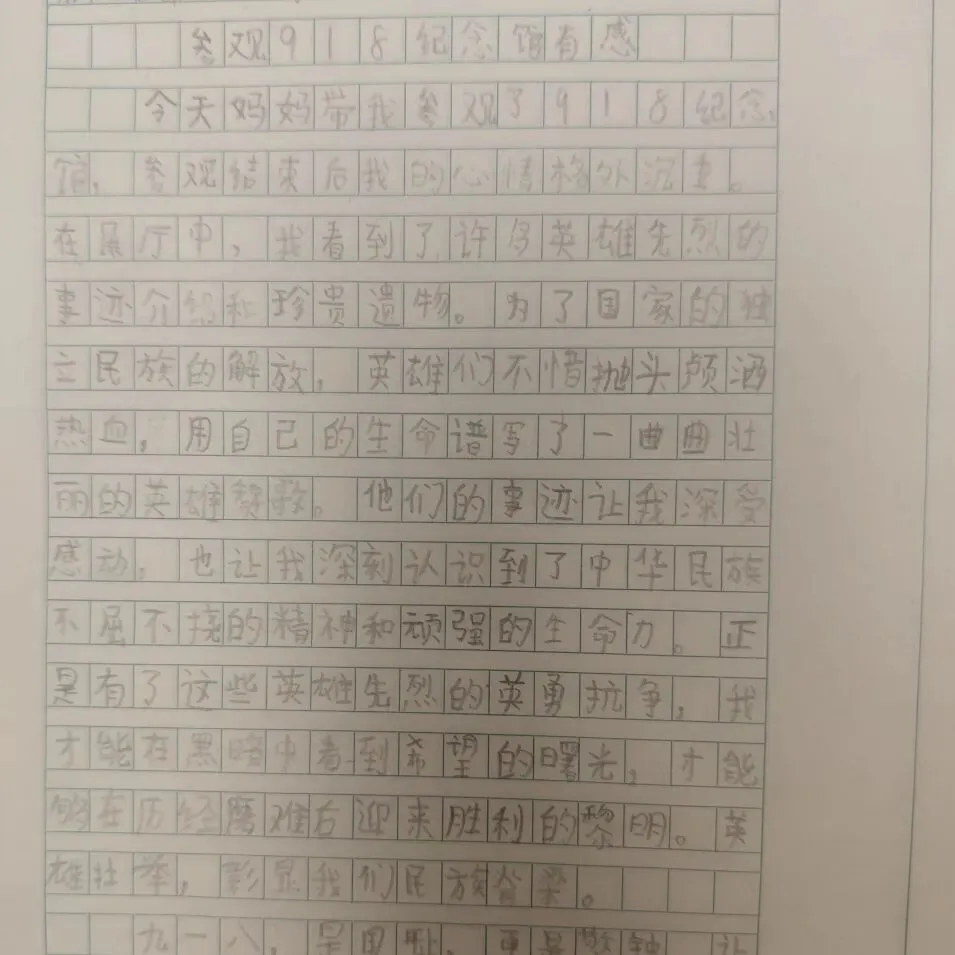 参观918纪念馆有感
今天妈妈带我参观了918纪念
馆，参观结束后我的心情格外沉重。
在展厅中，我看到了许多英雄先烈的
事迹介绍和珍贵遗物。为了国家的独
立民族的解放，英雄们不惜抛头颅洒
热血，用自己的生命谱写了一曲曲壮
丽的英雄赞歌。他们的事迹让我深受
感动，也让我深刻认识到了中华民族
不屈不挠的精神和顽强的生命力。正
是有了这些英雄先烈的英勇抗争，我
才能在黑暗中看到希望的曙光，才能
够在历经磨难后迎来胜利的黎明。英
雄壮举，彰显我们民族脊梁。
九一八，是国耻，更是警钟，让